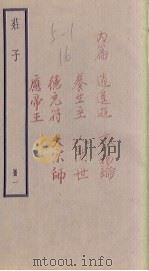 莊子
冊一
5-1
16
內篇 逍遙遊 論
養生主 世
德充符 大宗師
應帝王